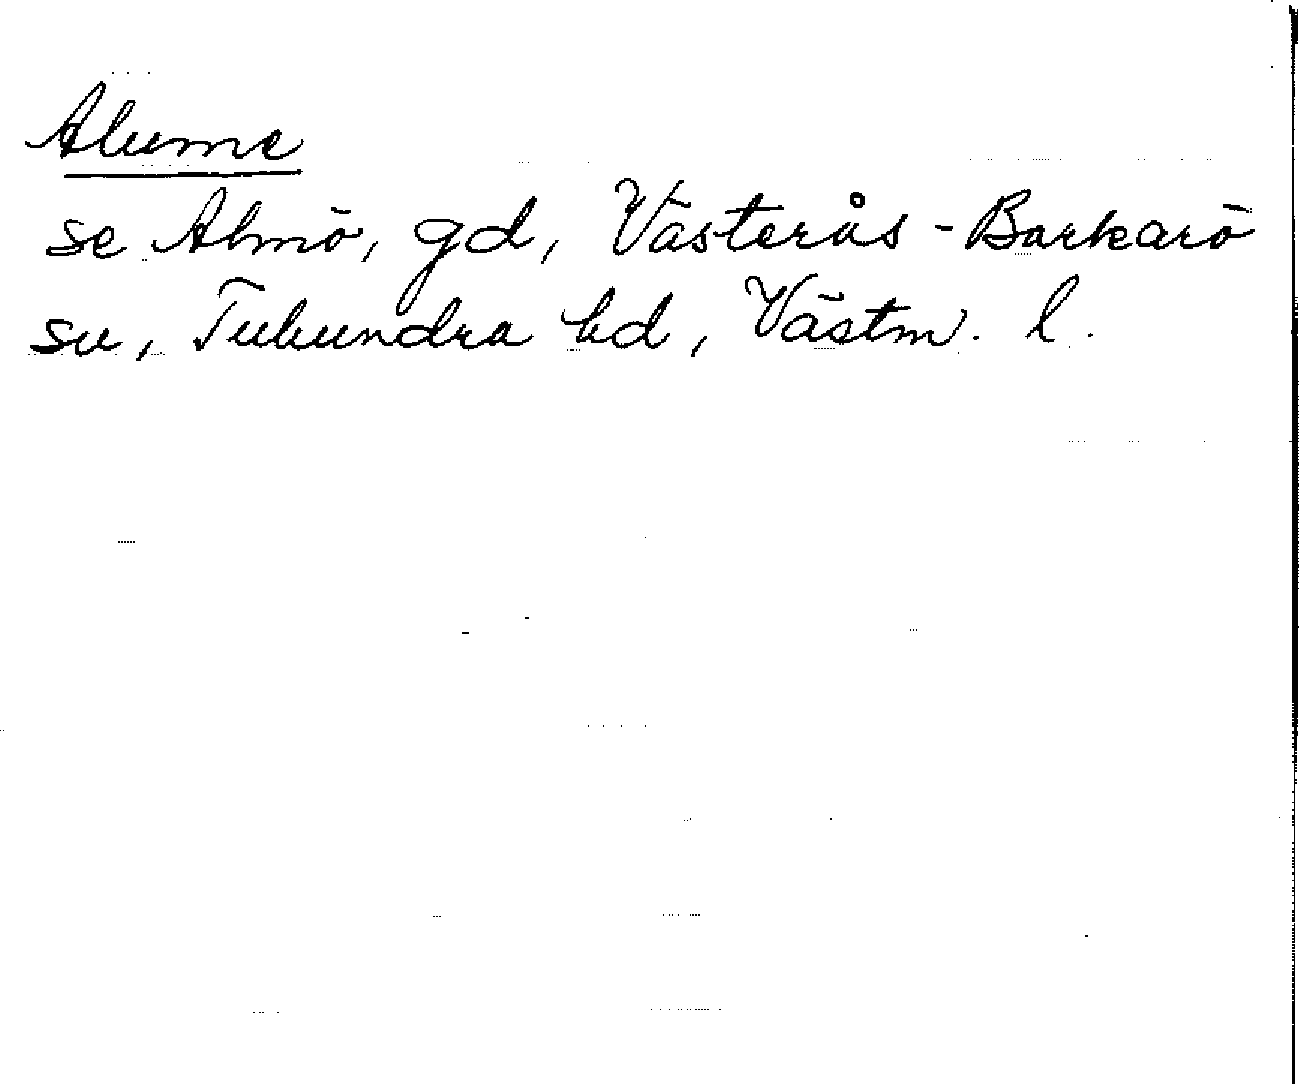 Alume
se Almö, gd, Västerås-Barkarö
sn, Tuhundra hd, Västm. l.